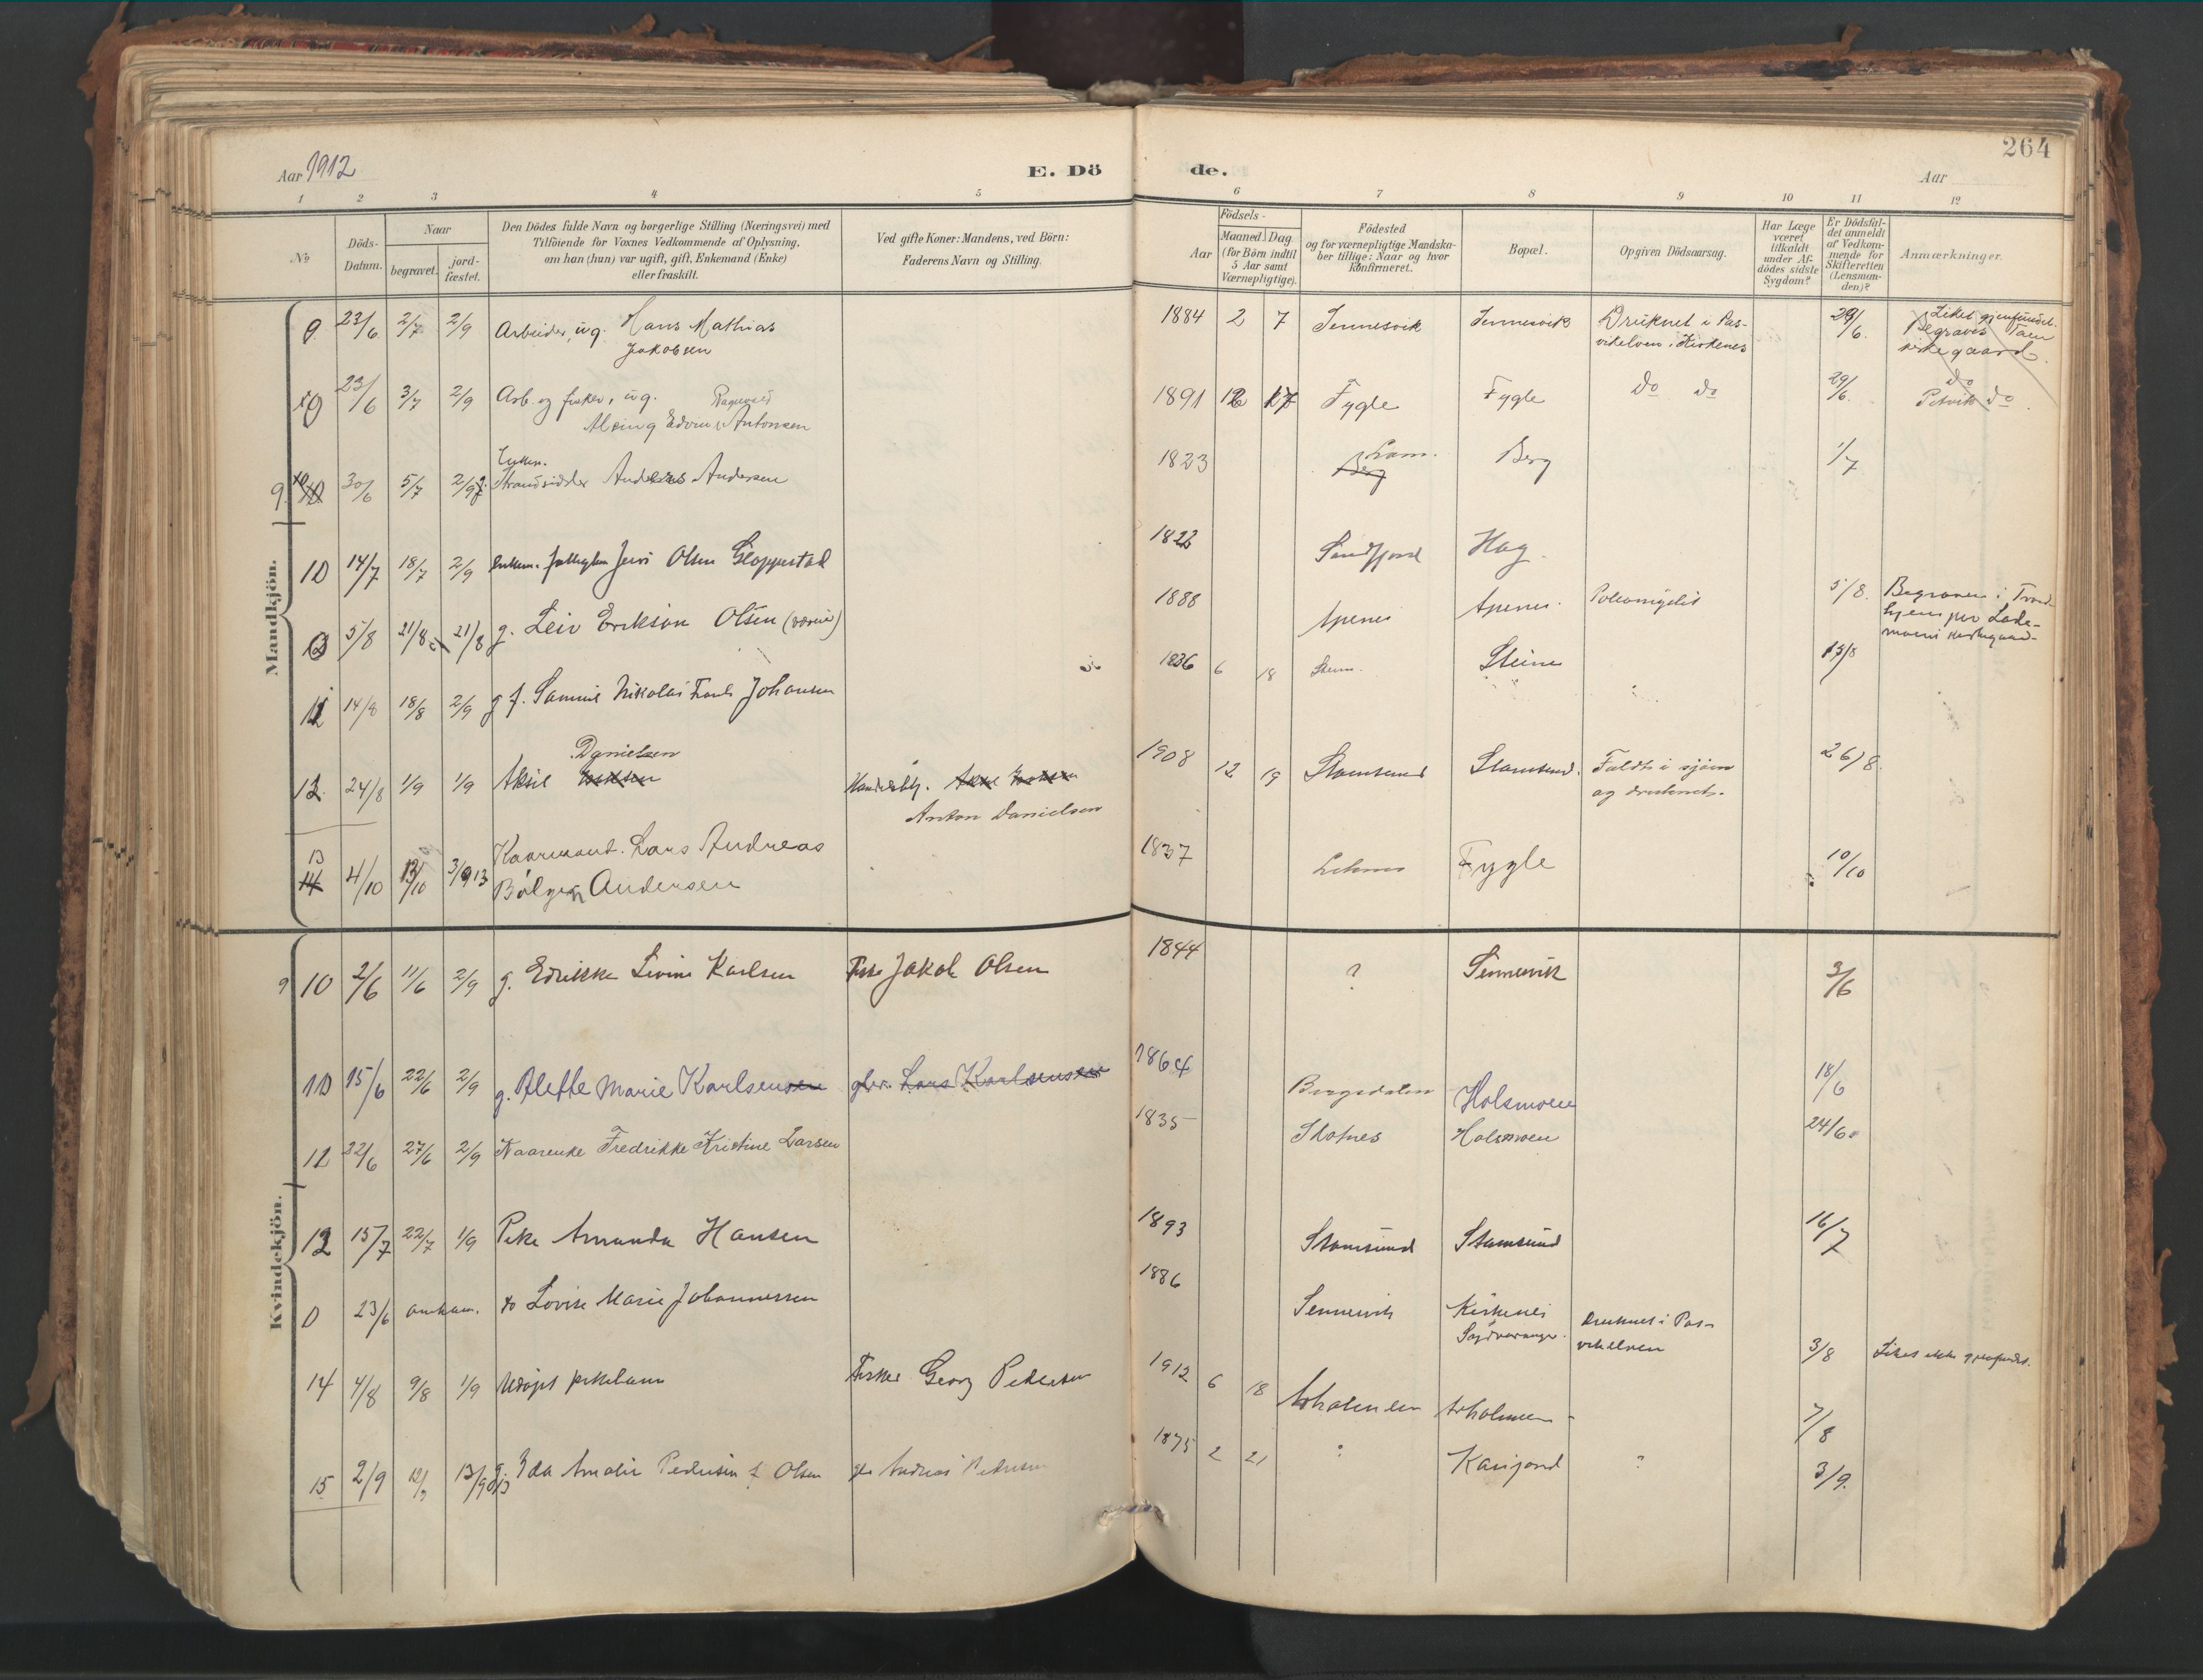 264
Aar 1912
E. Dö de.
Aar
1 2 3 4 5 6 7 8 9 10 11 12
No
Döds-Datum.
Naar
begravet.
jord-fæstet.
Den Dödes fulde Navn og borgerlige Stilling (Næringsvei) med
Tilföiende for Voxnes Vedkommende af Oplysning,
om han (hun) var ugift, gift, Enkemand (Enke)
eller fraskilt.
Ved gifte Koner: Mandens, ved Börn:
Faderens Navn og Stilling.
Födsels-
Aar
Maaned. Dag
(for Börn indtil
5 Aar samt
Værnepligtige).
Födested
og for værnepligtige Mandska-
ber tillige: Naar og hvor
konfirmeret.
Bopæl.
Opgiven Dödsaarsag.
Har Læge
været
tilkaldt
under Af-
dödes sidste
Sygdom?
Er Dödsfal-
det anmeldt
af Vedkom-
mende for
Skifteretten
(Lensman-
den)?
Anmærkninger.
Mandkjön.
23/6 2/7 2/9 Arbeider, ug. Hans Mathias
Jakobsen
1884 2 7 Sennesvik Sennesvik Druknet i Pas-
vikelven i Kirkenes
29/6. Liket gjenfundet.
Begraves
kirkegaard.
23/6 3/7 2/9 Arb. og fisker, ug.
Edvin Antonsen
1891 12 17 Fygle Fygle Do Do 29/6. Do
Petvik Do
9. 30/6 5/7 2/9 Enkem.
Strandsidder Anders Andersen
1823 Berg Berg 1/7
10 14/7 18/7 2/9 Enkem. Jens Olsen Gloppestad
1822 Sandfjord Hag
5/8 21/8 21/8 g. Leiv Erikson Olsen
1888 Apenes Apenes Poliomyelit 5/8. Begraven i Trond-
hjem paa Lade-
moens kirkegaard
14/8 18/8 2/9 g f. Samuel Nikolai Johansen
1836 6 18 Stein. Steine 17/8
12. 24/8 1/9 1/9 Aksel Danielsen
Anton Danielsen
1908 12 19 Stamsund Stamsund. Faldt i sjøen
og druknet.
26/8.
13 14 4/10 13/10 3/9 13 Kaarmand. Lars Andreas
Bølgen Andersen
1837 Fygle 10/10
Kvindekjön.
9 10 2/6 11/6 2/9 g. Edrikke Livine Karlsen Fisker Jakob Olsen
1844 ? Sennesvik 3/6
15/6 22/6 2/9 g. Aleffe Marie Karlsensen gbr. Lars Karlsensen
1864 Bergsdalen Holsmoen 18/6
12 22/6 27/6 2/9 Kaarenke Fredrikke Kristine Larsen
1835 Skotnes Holsmoen 24/6.
15/7 22/7 1/9 Pike Amanda Hansen
1893 Stamsund Stamsund 16/7
0 23/6 omkom. Do Lovise Marie Johannessen
1886 Sennesvik Kirkenes
Sydvaranger.
druknet i Pas-
vikelven
3/8 Liket ikke gjenfundet.
14 4/8 9/8 1/9 Udøpt pikebarn Fisker Georg Pedersen
1912 6 18 Arholmen 7/8
15 2/9 12/9 13/9 g. Ida Amalie Pedersen f. Olsen Andreas Pedersen
1875 2 21 ? ? 3/9.